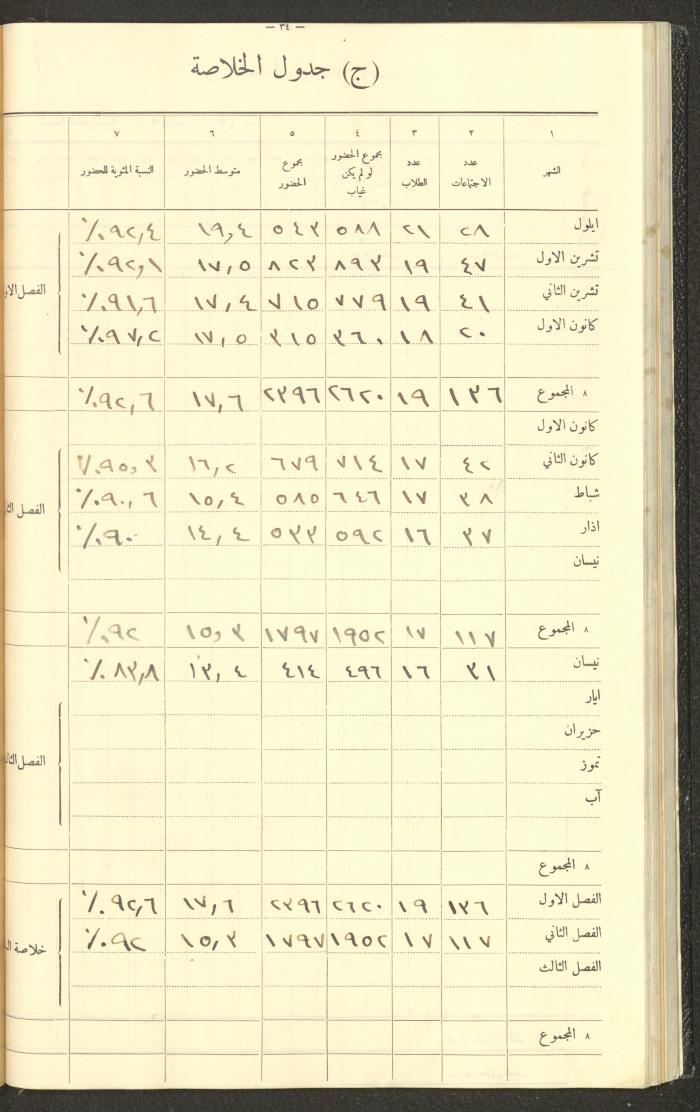 — ٣٤ —
(ج) جدول الخلاصة
١ ٢ ٣ ٤ ٥ ٦ ٧
الشهر عدد الاجتماعات عدد الطلاب مجموع الحضور لو لم يكن غياب مجموع الحضور متوسط الحضور النسبة المئوية للحضور
ايلول ٢٨ ٢١ ٥٨٨ ٥٤٣ ١٩,٤ ٩٢,٤٪
تشرين الاول ٤٧ ١٩ ٨٩٣ ٨٢٣ ١٧,٥ ٩٢,١٪
تشرين الثاني ٤١ ١٩ ٧٧٩ ٧١٥ ١٧,٤ ٩١,٦٪
الفصل الاو
كانون الاول ٢٠ ١٨ ٣٦٠ ٣١٥ ١٧,٥ ٩٧,٢٪
٨ المجموع ١٣٦ ١٩ ٢٦٢٠ ٢٣٩٦ ١٧,٦ ٩٢,٦٪
كانون الاول
كانون الثاني ٤٢ ١٧ ٧١٤ ٦٧٩ ١٦,٢ ٩٥,٣٪
شباط ٣٨ ١٧ ٦٤٦ ٥٨٥ ١٥,٤ ٩٠,٦٪
الفصل الثا
اذار ٣٧ ١٦ ٥٩٢ ٥٣٣ ١٤,٤ ٩٠٪
نيسان
٨ المجموع ١١٧ ١٧ ١٩٥٢ ١٧٩٧ ١٥,٣ ٩٢٪
نيسان ٣١ ١٦ ٤٩٦ ٤١٤ ١٣,٤ ٨٣,٨٪
ايار
حزيران
تموز
الفصل الثال
آب
٨ المجموع
الفصل الاول ١٣٦ ١٩ ٢٦٢٠ ٢٣٩٦ ١٧,٦ ٩٢,٦٪
الفصل الثاني ١١٧ ١٧ ١٩٥٢ ١٧٩٧ ١٥,٣ ٩٢٪
خلاصة
الفصل الثالث
٨ المجموع